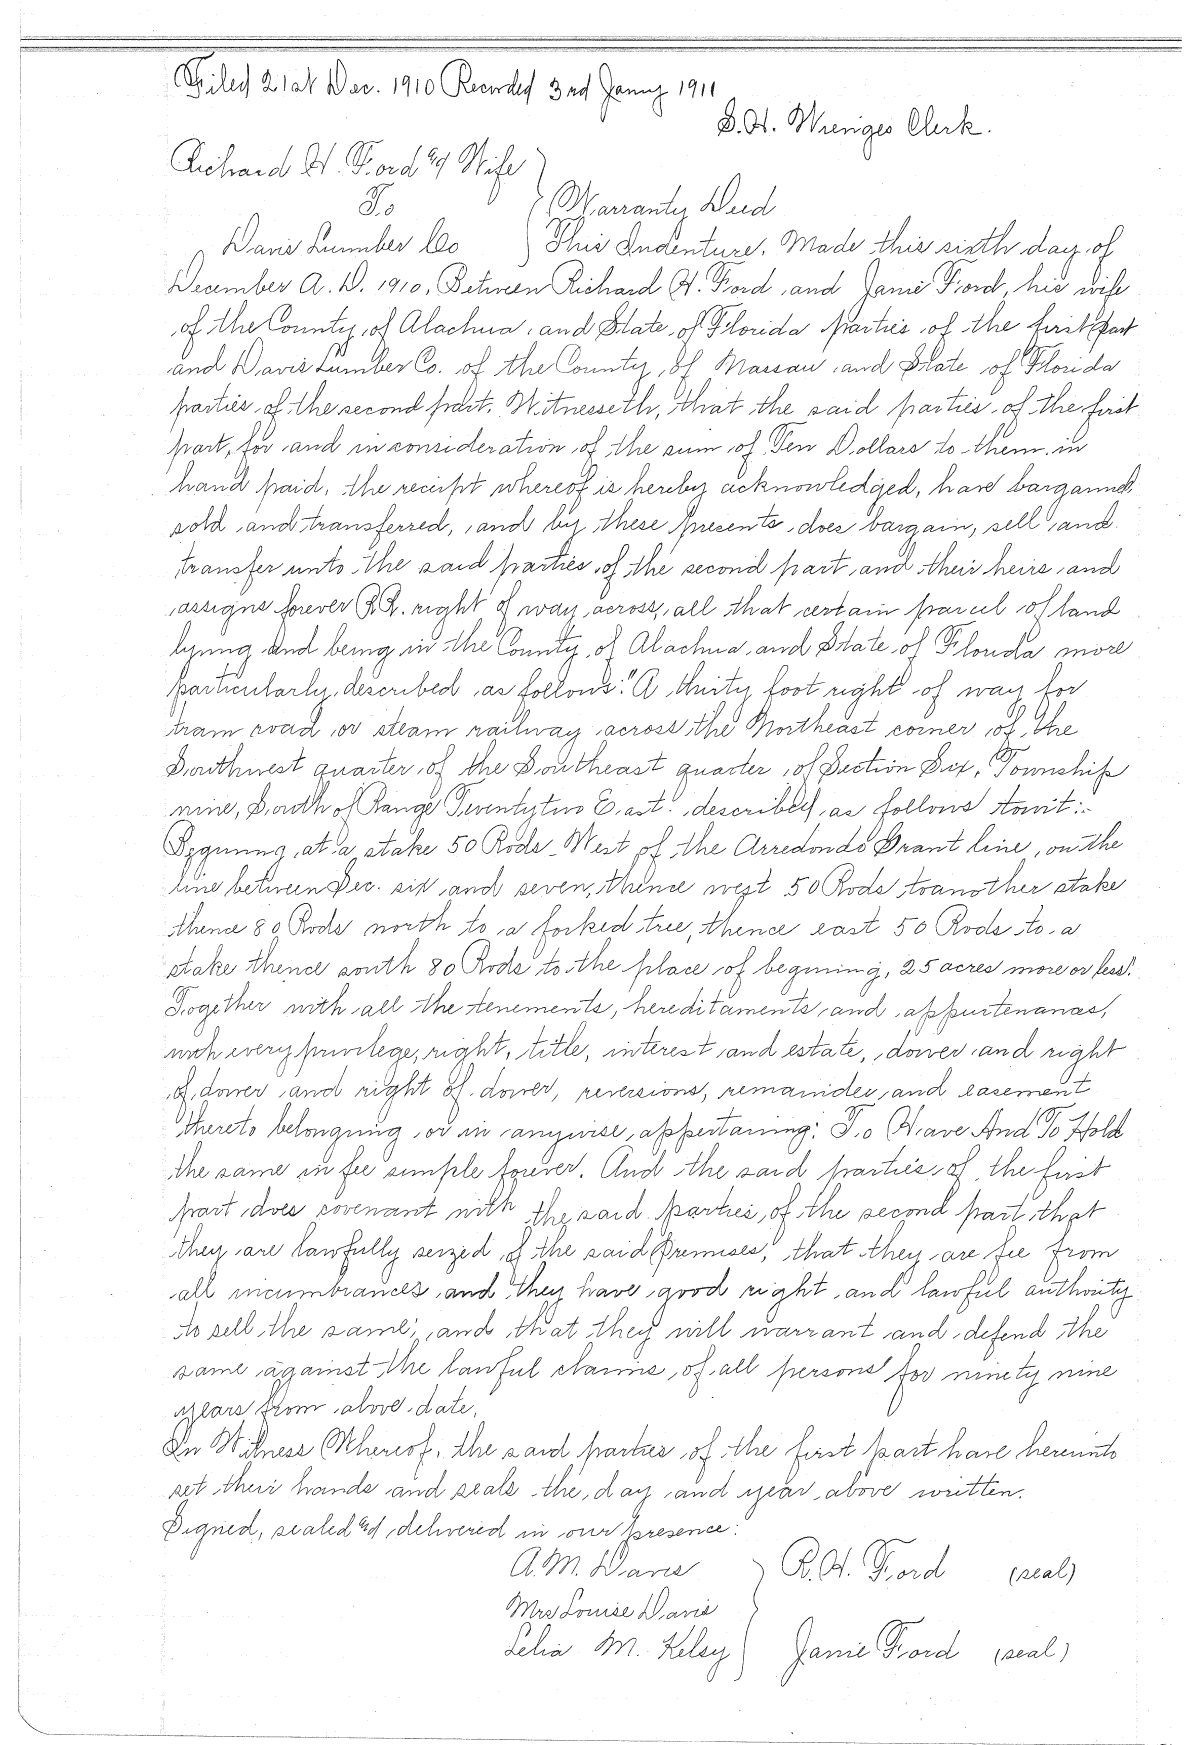 Filed 21st Dec. 1910 Recorded 3rd Janny 1911
S.H. Wienges Clerk.
Richard H. Ford and Wife
To
Warranty Deed
Davis Lumber Co This Indenture, Made this sixth day of
December A.D. 1910, Between Richard H. Ford and Janie Ford, his wife
of the County of Alachua, and State of Florida parties of the first part
and Davis Lumber Co. of the County of Nassau and State of Florida
parties of the second part. Witnesseth, that the said parties of the first
part, for and in consideration of the sum of Ten Dollars to them in
hand paid, the receipt whereof is hereby acknowledged, have bargained,
sold and transferred, and by these presents does bargain, sell and
transfer unto the said parties of the second part and their heirs and
assigns forever R.R. right of way across, all that certain parcel of land
lying and being in the County of Alachua and State of Florida more
particularly described as follows: "A thirty foot right of way for
tram road or steam railway across the Northeast corner of the
Southwest quarter of the Southeast quarter of Section Six, Township
nine, South of Range Twentytwo East" described as follows towit:-
Begining at a stake 50 Rods West of the Arredondo Grant line, on the
line between Sec. six and seven, thence west 50 Rods to another stake
thence 80 Rods north to a forked tree, thence east 50 Rods to a
stake thence south 80 Rods to the place of begining, 25 acres more or less.
Together with all the tenements, hereditaments and appurtenances,
with every privilege, right, title, interest and estate, dower and right
of dower and right of dower, reversions, remainder and easement
thereto belonging or in anywise appertaining: To Have And To Hold
the same in fee simple forever. And the said parties of the first
part does covenant with the said parties of the second part that
they are lawfully seized of the said Premises, that they are fee from
all incumbrances and they have good right and lawful authority
to sell the same; and that they will warrant and defend the
same against the lawful claims of all persons for ninety nine
years from above date.
In Witness Whereof, the said parties of the first part have hereinto
set their hands and seals the day and year above written.
Signed, sealed and delivered in our presence:
A.M. Davis R.H. Ford (seal)
Mrs Louise Davis
Lelia M. Kelsy Janie Ford (seal)